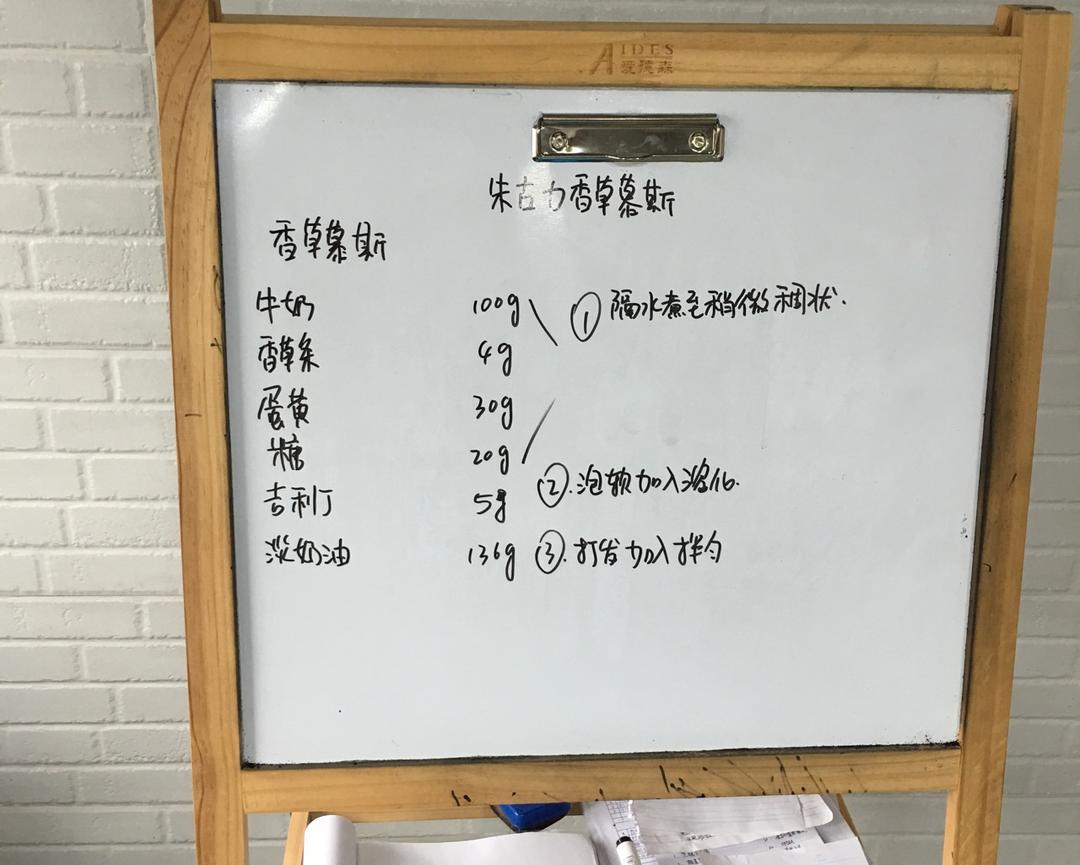 AIDES
爱德森
朱古力香草慕斯
香草慕斯
牛奶 100g ① 隔水煮至稍微稠状.
香草条 4g
蛋黄 30g
糖 20g
吉利丁 5g ②.泡软加入溶化.
淡奶油 136g ③.打发加入拌匀